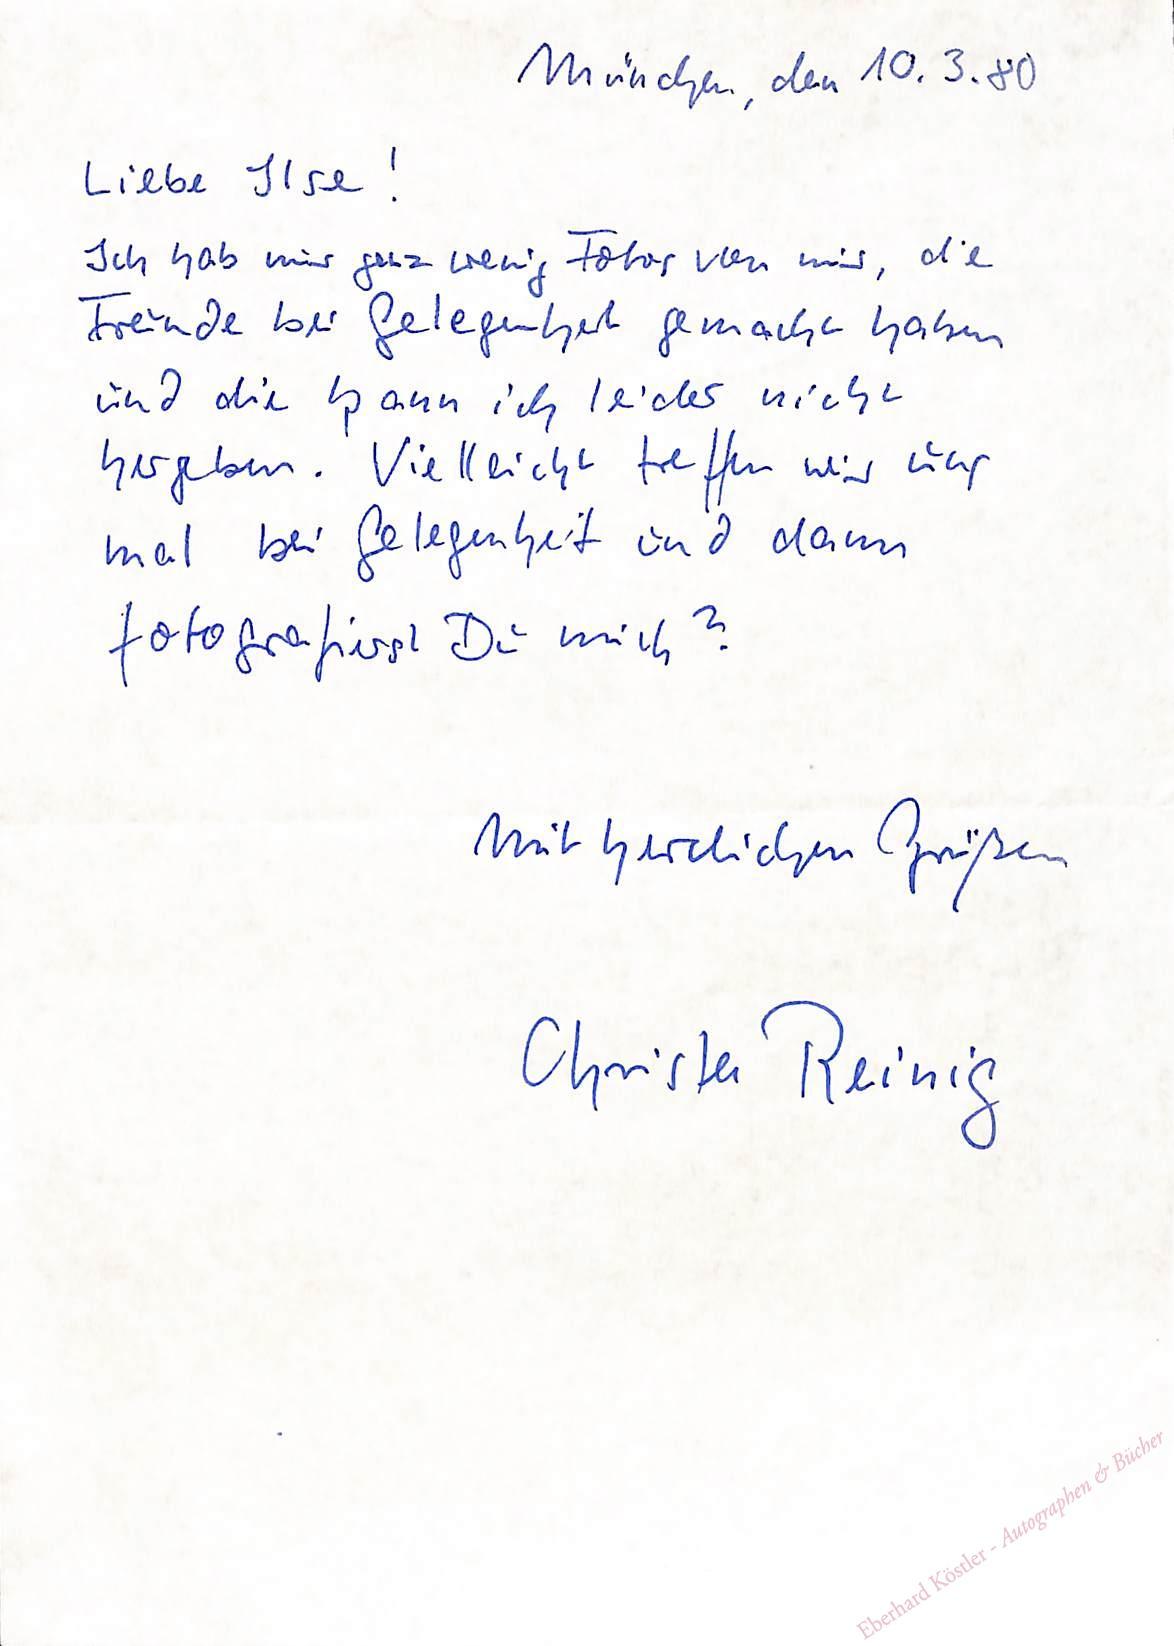 München, den 10.3.80
Liebe Ilse!
Ich hab nur ganz wenig Fotos von mir, die
Freunde bei Gelegenheit gemacht haben
und die kann ich leider nicht
hergeben. Vielleicht treffen wir uns
mal bei Gelegenheit und dann
fotografierst Du mich?
Mit herzlichen Grüßen
Christa Reinig
Eberhard Köstler - Autographen & Bücher